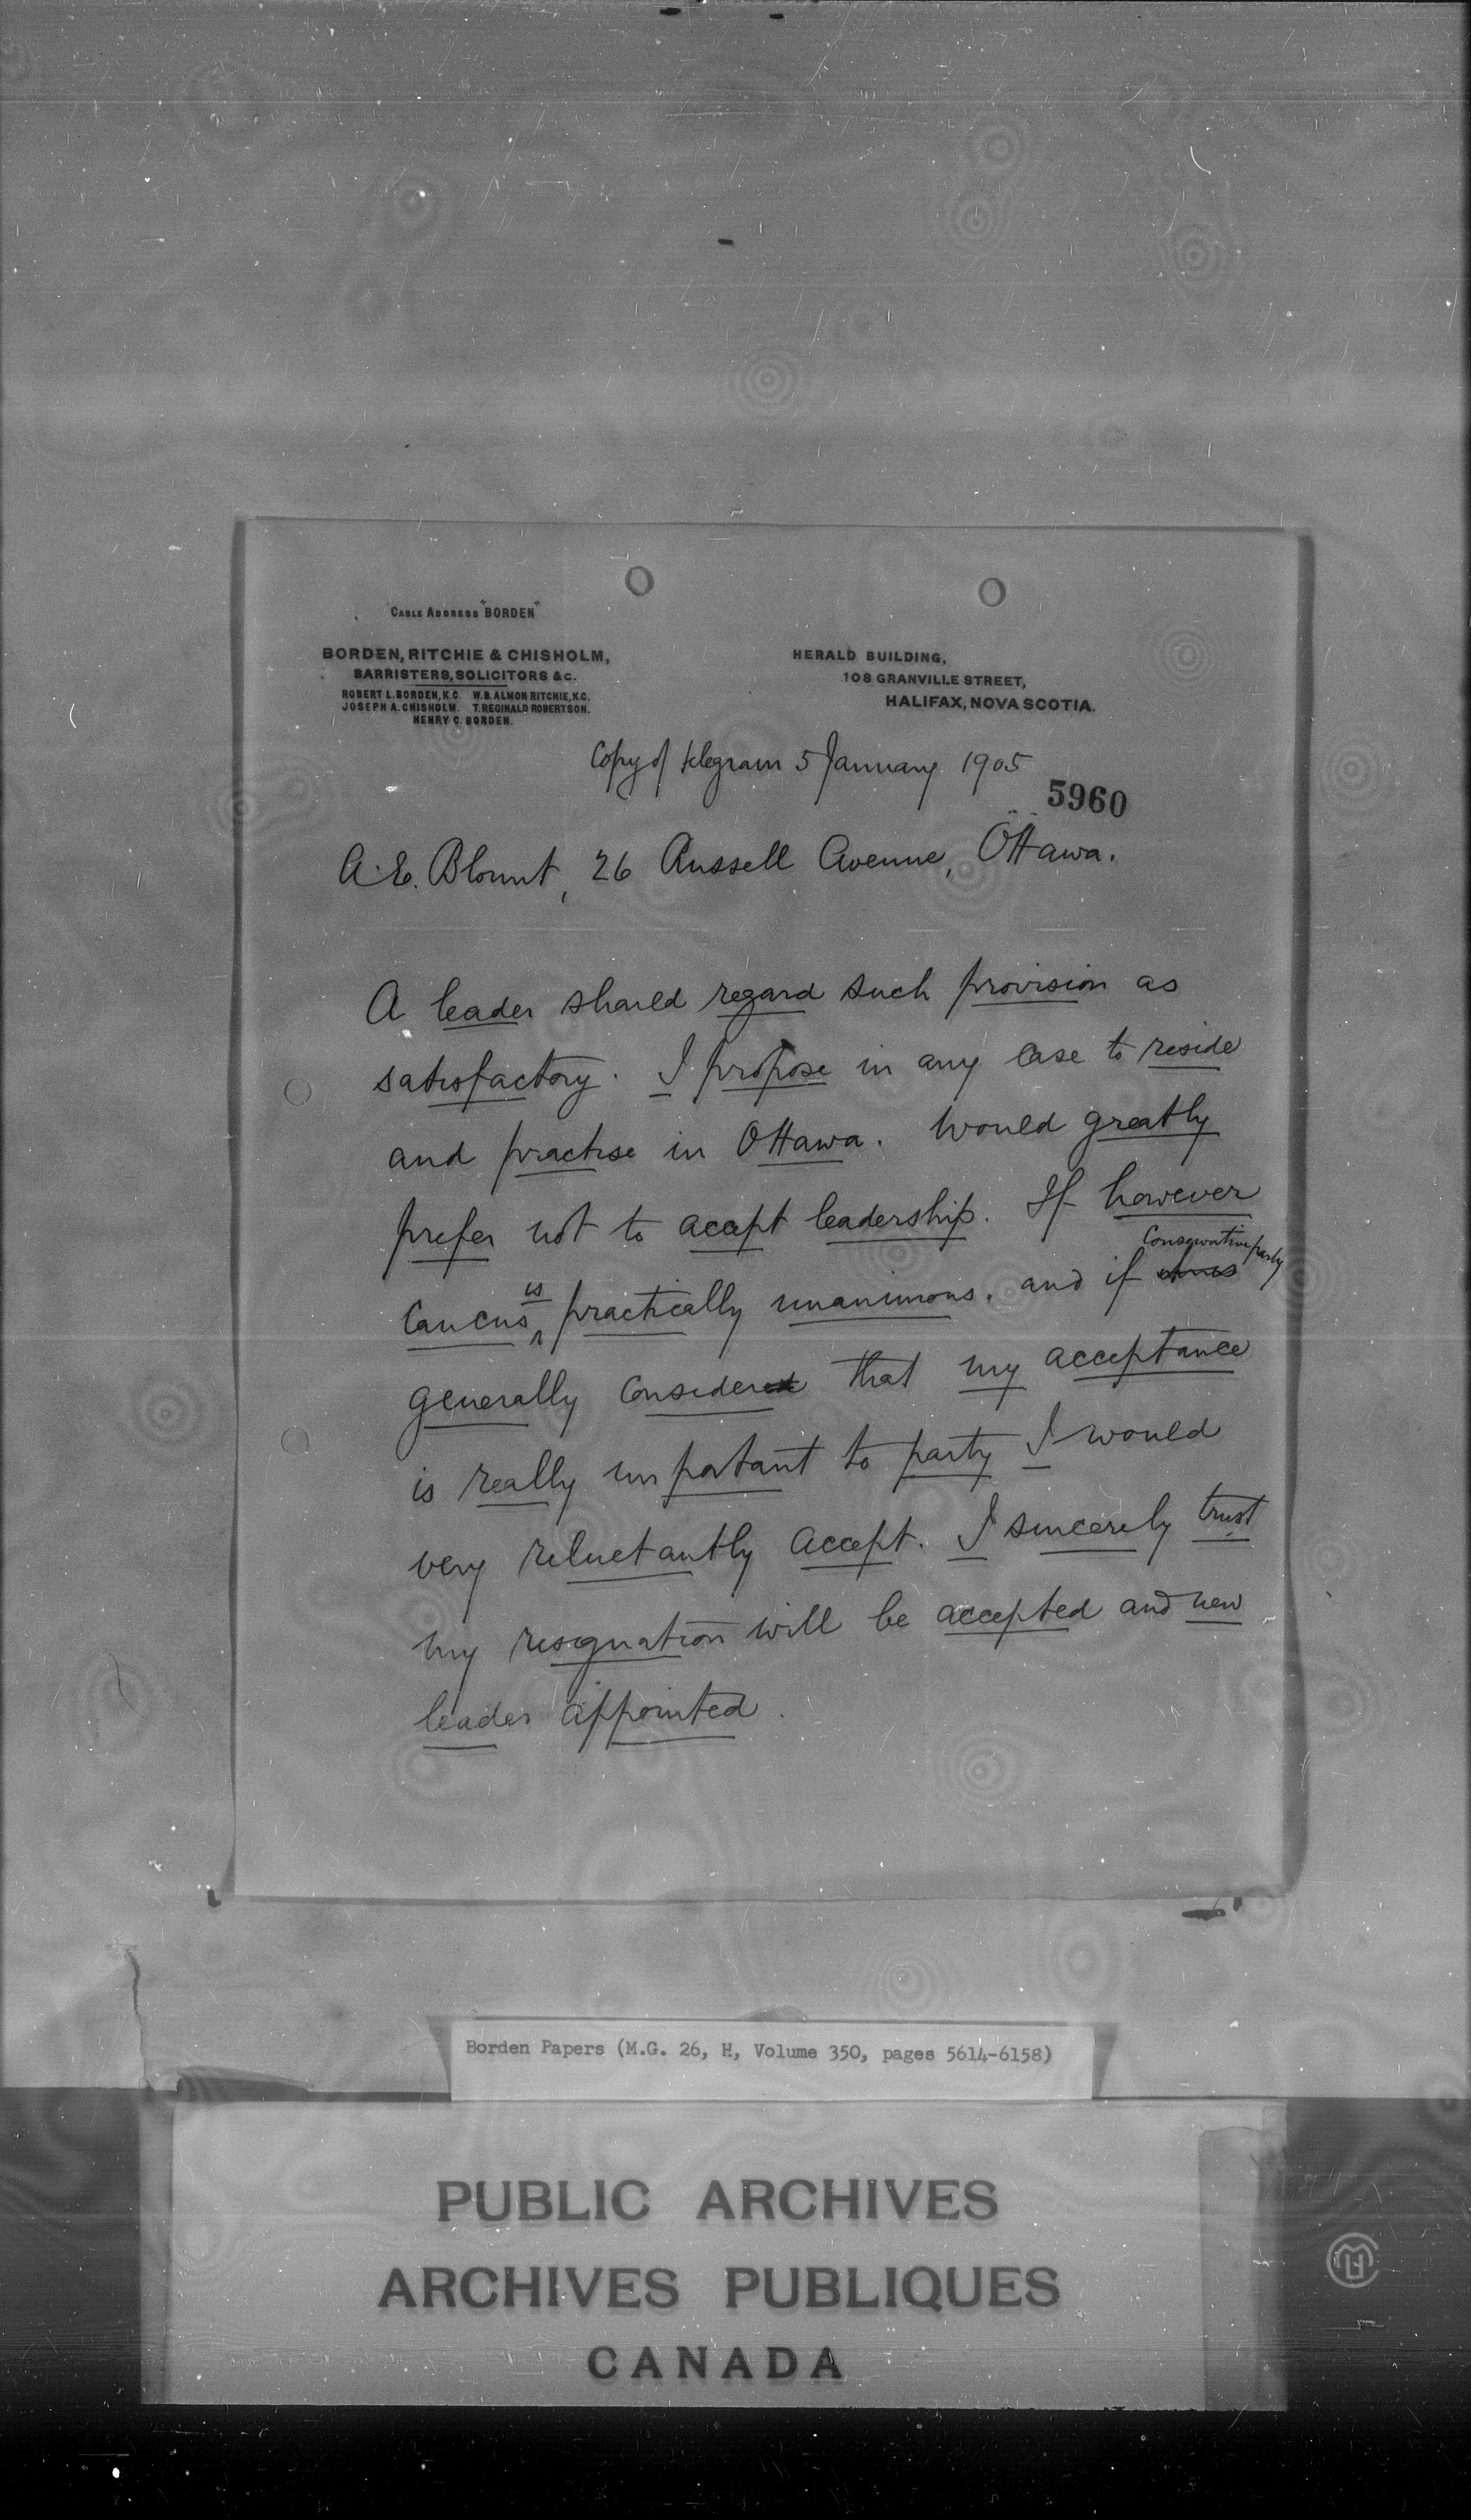 CABLE ADDRESS "BORDEN"
BORDEN, RITCHIE & CHISHOLM,
BARRISTERS, SOLICITORS &c.
ROBERT L. BORDEN, K.C. W.B. ALMON RITCHIE, K.C.
JOSEPH A. CHISHOLM. T. REGINALD ROBERTSON.
HENRY C. BORDEN.
HERALD BUILDING,
108 GRANVILLE STREET,
HALIFAX, NOVA SCOTIA.
Copy of telegram 5 January 1905
5960
A. E. Blount, 26 Russell Avenue, Ottawa.
A leader should regard such provision as
satisfactory. I propose in any case to reside
and practise in Ottawa. Would greatly
prefer not to accept leadership. If however
Conservative party
caucus is practically unanimous, and if
generally considered that my acceptance
is really important to party I would
very reluctantly accept. I sincerely trust
my resignation will be accepted and new
leader appointed.
Borden Papers (M.G. 26, H, Volume 350, pages 5614-6158)
PUBLIC ARCHIVES
ARCHIVES PUBLIQUES
CANADA